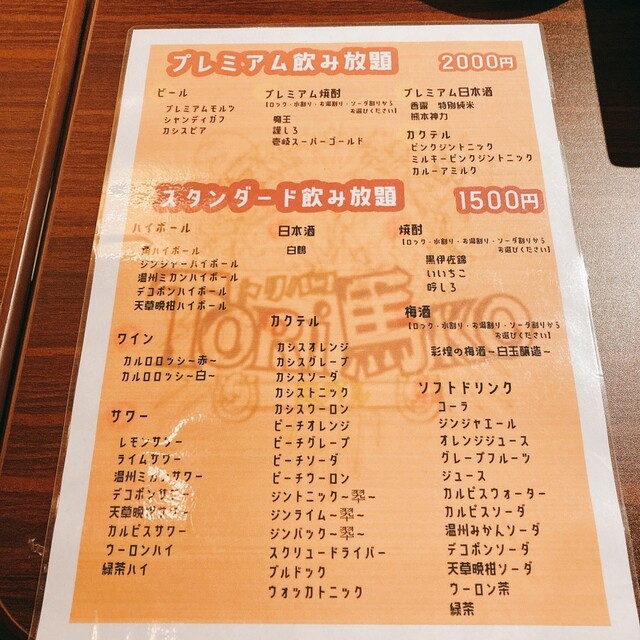 プレミアム飲み放題 2000円
ビール
プレミアムモルツ
シャンディガフ
カシスビア
プレミアム焼酎
【ロック・水割り・お湯割り・ソーダ割りから
お選びください】
魔王
謹しろ
壱岐スーパーゴールド
プレミアム日本酒
香露 特別純米
熊本神力
カクテル
ピンクジントニック
ミルキーピンクジントニック
カルーアミルク
スタンダード飲み放題 1500円
ハイボール
ハイボール
ジンジャーハイボール
温州ミカンハイボール
デコポンハイボール
天草晩柑ハイボール
ワイン
カルロロッシ~赤~
カルロロッシ~白~
サワー
レモンサワー
ライムサワー
温州ミカンサワー
デコポンサワー
天草晩柑サワー
カルピスサワー
ウーロンハイ
緑茶ハイ
日本酒
白鶴
カクテル
カシスオレンジ
カシスグレープ
カシスソーダ
カシストニック
カシスウーロン
ピーチオレンジ
ピーチグレープ
ピーチソーダ
ピーチウーロン
ジントニック~翠~
ジンライム~翠~
ジンバック~翠~
スクリュードライバー
ブルドック
ウォッカトニック
焼酎
【ロック・水割り・お湯割り・ソーダ割りから
お選びください】
黒伊佐錦
いいちこ
吟しろ
梅酒
【ロック・水割り・お湯割り・ソーダ割りから
お選びください】
彩煌の梅酒~白玉醸造~
ソフトドリンク
コーラ
ジンジャエール
オレンジジュース
グレープフルーツ
ジュース
カルピスウォーター
カルピスソーダ
温州みかんソーダ
デコポンソーダ
天草晩柑ソーダ
ウーロン茶
緑茶